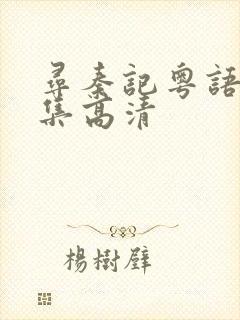 尋秦記粵語
集高清
楊樹壁